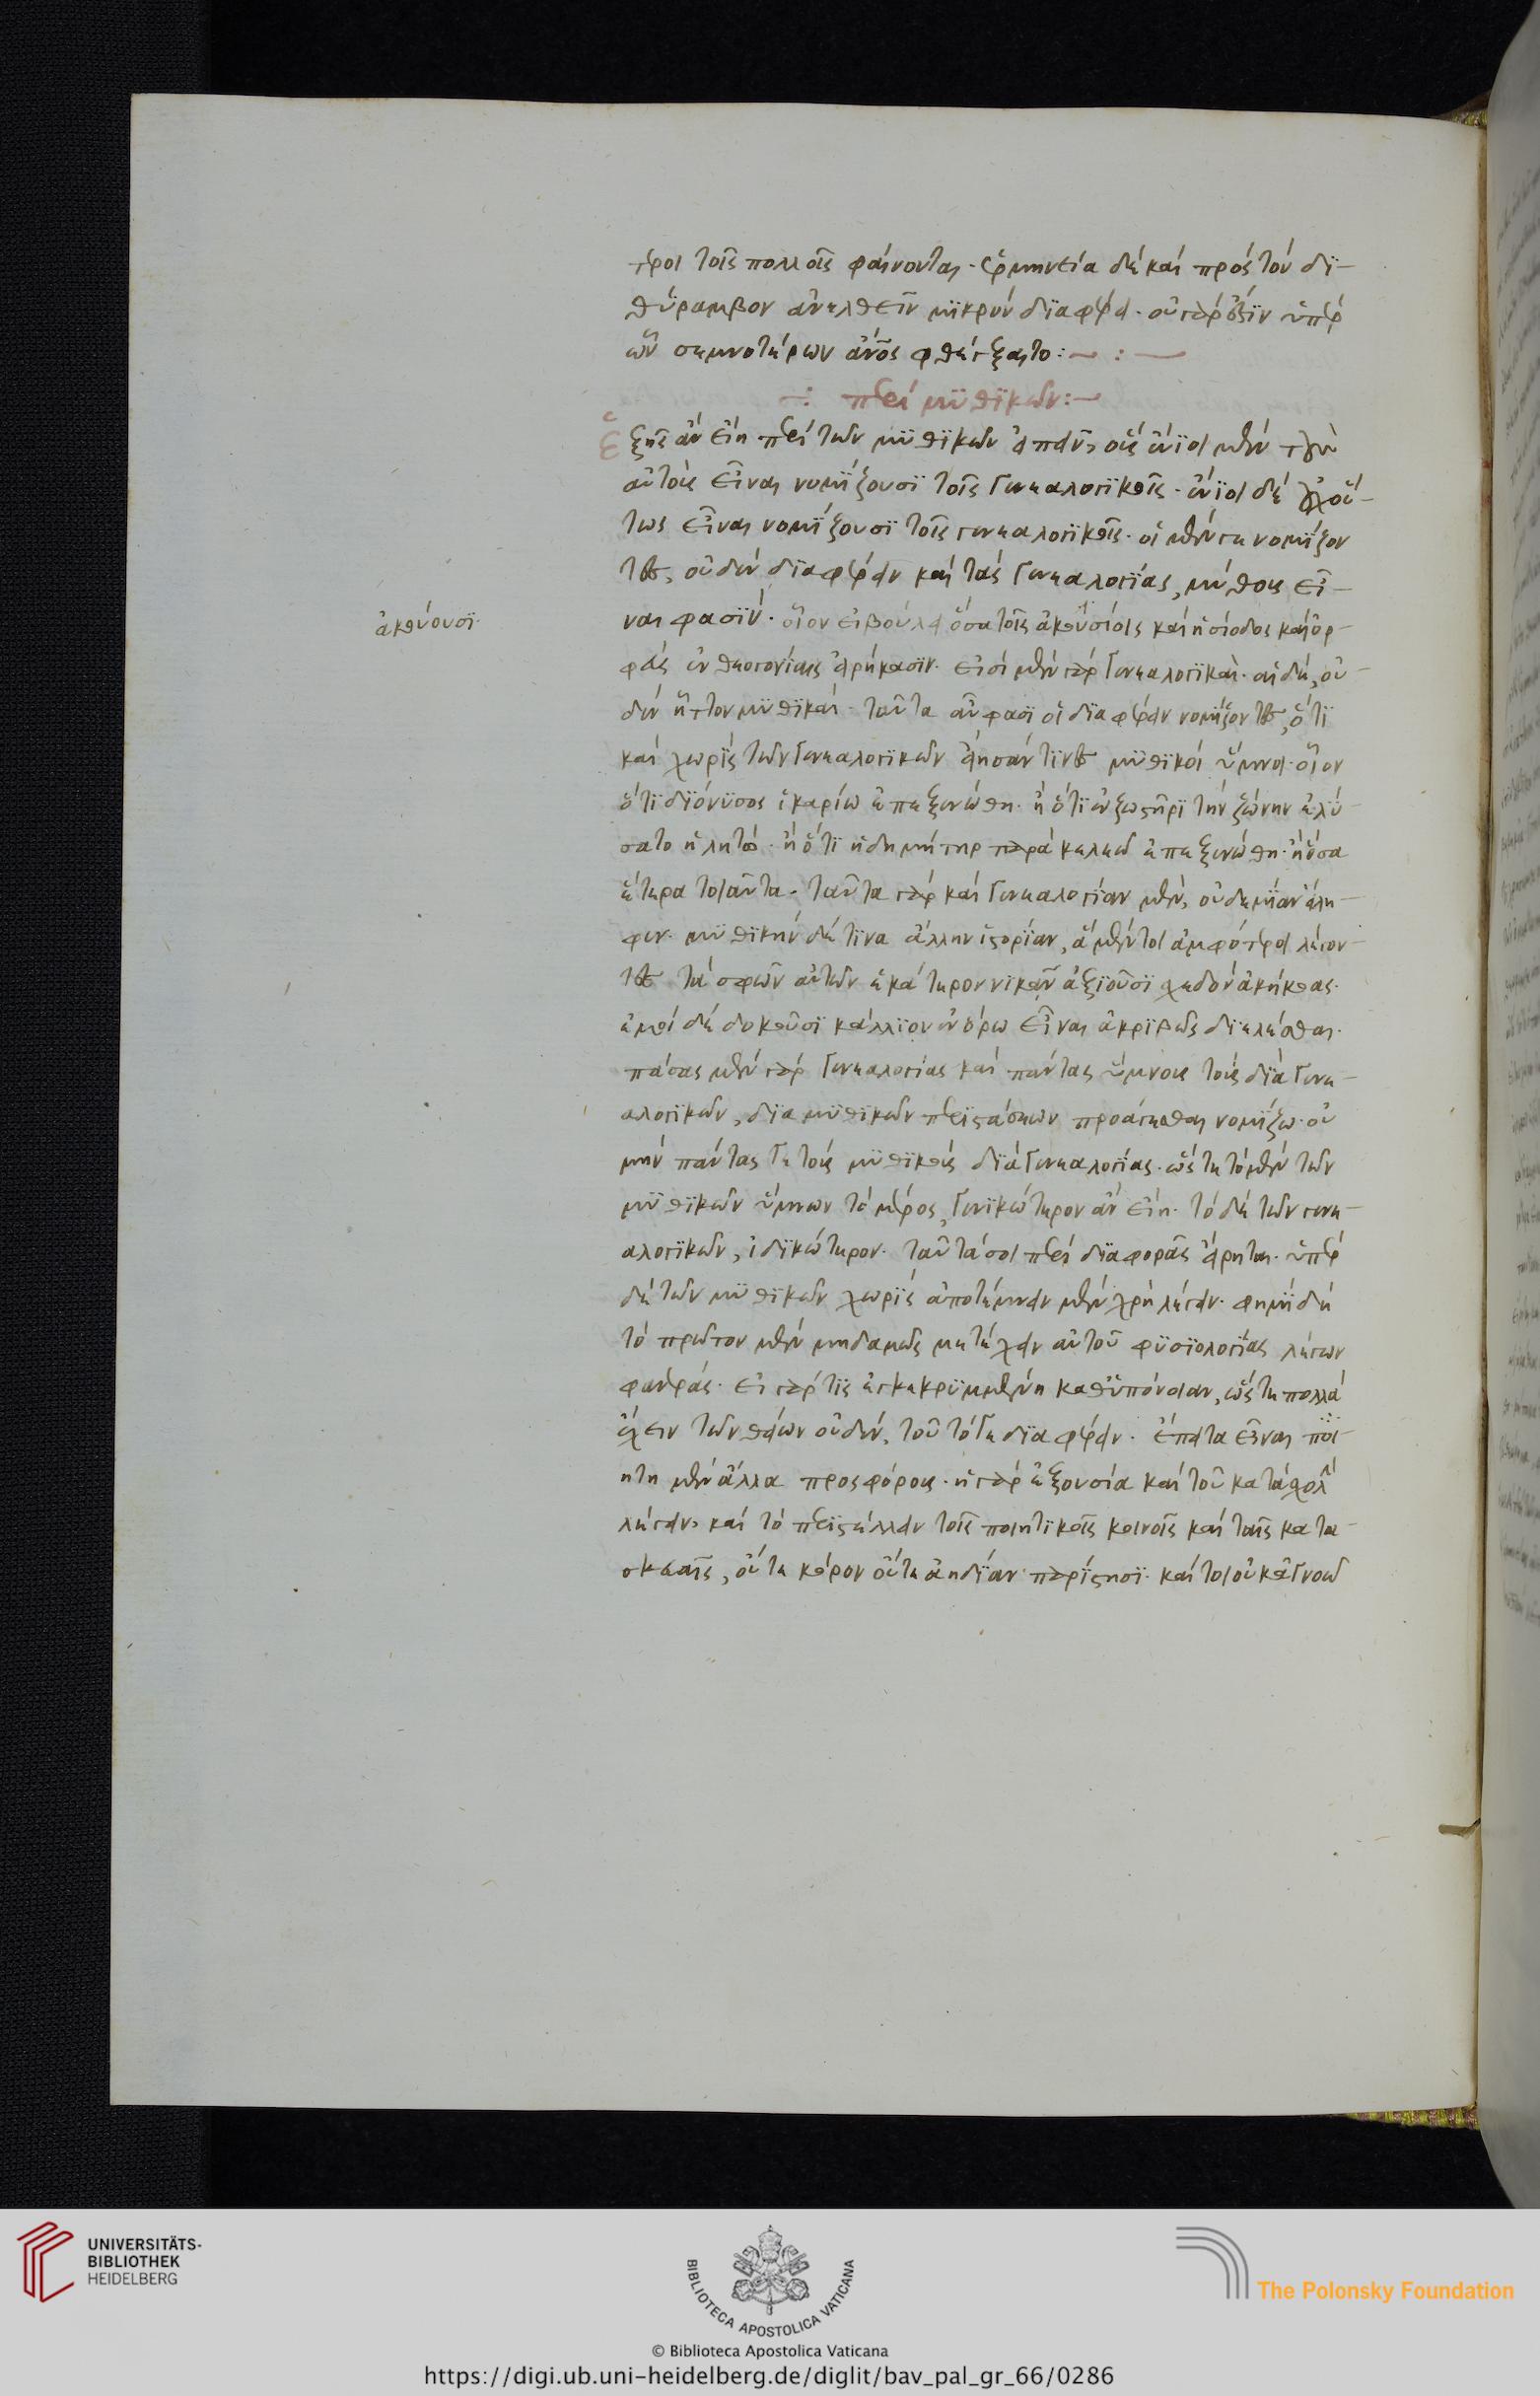 τεροι τοῖς πολλοῖς φαίνονται. ἑρμηνεία δὲ καὶ πρὸς τὸν δι-
θύραμβον ἀνελθεῖν μικρὸν διαφέρει. οὐ γάρ ἐστιν ὑπὲρ
ὧν σεμνοτέρων ἀνος φθέγξαιτο :~ : ~
~: περὶ μυθικῶν :~
ἑξῆς ἂν εἴη περὶ τῶν μυθικῶν εἰπεῖν, οὓς ἔνιοι μὲν
αὐτοὺς εἶναι νομίζουσι τοῖς γενεαλογικοῖς. ἔνιοι δὲ οὔ-
τως εἶναι νομίζουσι τοῖς γενεαλογικοῖς. οἱ μέν γε νομίζον
τες, οὐδὲν διαφέρειν καὶ τὰς γενεαλογίας, μύθους εἶ-
ναι φασίν. οἷον εἰ βούλει ὅσα τοῖς ἀκουσίοις καὶ ἡσίοδος καὶ ὀρ-
φεὺς ἐν θεογονίαις εἰρήκασιν. εἰσὶ μὲν γὰρ γενεαλογικαὶ. αἱ δὲ, οὐ-
δὲν ἧττον μυθικαί. ταῦτα οὖν φασι οἱ διαφέρειν νομίζοντες, ὅτι
καὶ χωρὶς τῶν γενεαλογικῶν εἴησάν τινες μυθικοὶ ὕμνοι. οἷον
ὅτι διόνυσος ἰκαρίω ἐπεξενώθη. ἢ ὅτι ἐν ζωστῆρι τὴν ζώνην ἐλύ-
σατο ἡ λητώ. ἢ ὅτι ἡ δημήτηρ παρὰ κελεῶ ἐπεξενώθη. ἢ ὅσα
ἕτερα τοιαῦτα. ταῦτα γὰρ καὶ γενεαλογίαν μὲν, οὐδεμίαν εἴλη-
φεν. μυθικὴν δέ τινα ἄλλην ἱστορίαν, ἃ μέντοι ἀμφότεροι λέγον-
τες τὰ σφῶν αὐτῶν ἑκάτερον νικᾶν ἀξιοῦσι σχεδὸν ἀκήκοας.
ἐμοὶ δὲ δοκοῦσι κάλλιον ἐν ὅρω εἶναι ἀκριβῶς διελέσθαι.
πάσας μὲν γὰρ γενεαλογίας καὶ πάντας ὕμνους τοὺς διὰ γενε-
αλογικῶν, δια μυθικῶν περιστάσεων προάγεσθαι νομίζω. οὐ
μὴν πάντας γε τοὺς μυθικοὺς διὰ γενεαλογίας. ὥστε τὸ μὲν τῶν
μυθικῶν ὕμνων τὸ μέρος, γενικώτερον ἂν εἴη. τὸ δὲ τῶν γενε-
αλογικῶν, ἰδικώτερον. ταῦτά σοι περὶ διαφορᾶς εἴρηται. ὑπὲρ
δὲ τῶν μυθικῶν χωρὶς ἀποτέμνειν μὲν χρὴ λέγειν. φημὶ δὴ
τὸ πρῶτον μὲν μηδαμῶς μετέχειν αὐτοῦ φυσιολογίας λέγων
φανεράς. εἰ γάρ τις ἐγκεκρυμμένη καθ' ὑπόνοιαν, ὥστε πολλὰ
ἔχειν τῶν θείων οὐδὲν, τοῦτό γε διαφέρειν. ἔπειτα εἶναι ποι-
ητῆ μὲν ἄλλα προσφόρους. ἡ γὰρ ἐξουσία καὶ τοῦ κατὰ σχολὴν
λέγειν, καὶ τὸ περιστέλλειν τοῖς ποιητικοῖς κοινοῖς καὶ ταῖς κατα-
σκευαῖς, οὔτε κόρον οὔτε ἀηδίαν παρίστησι. καίτοι οὐκ ἀγνοῶ
ἀκούουσι.
UNIVERSITÄTS-
BIBLIOTHEK
HEIDELBERG
BIBLIOTECA APOSTOLICA VATICANA
© Biblioteca Apostolica Vaticana
The Polonsky Foundation
https://digi.ub.uni-heidelberg.de/diglit/bav_pal_gr_66/0286